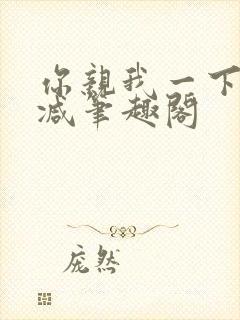 你親我一下
减筆趣閣
庞然